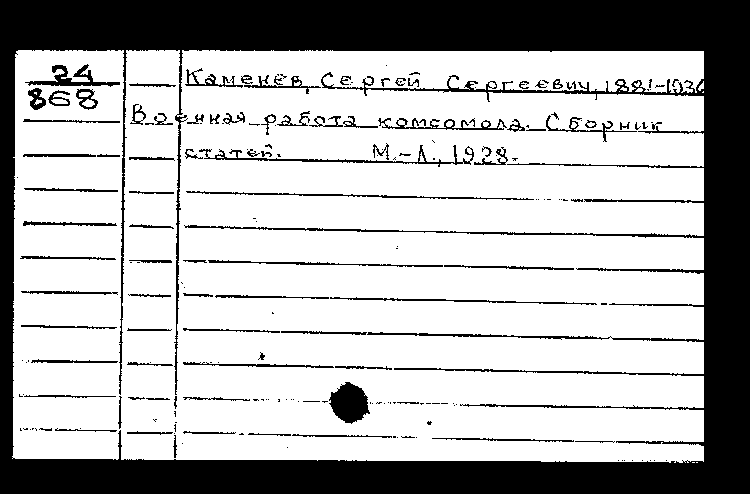 24
868
Каменев, Сергей Сергеевич, 1881-1936
Военная работа комсомола. Сборник
статей. М.-Л., 1928.